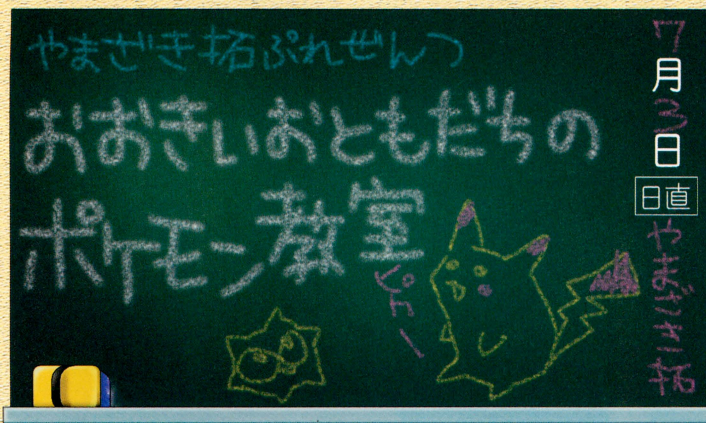 やまざき拓ぷれぜんつ
おおきいおともだちの
ポケモン教室
ピカー
7月3日
日直
やまざき拓